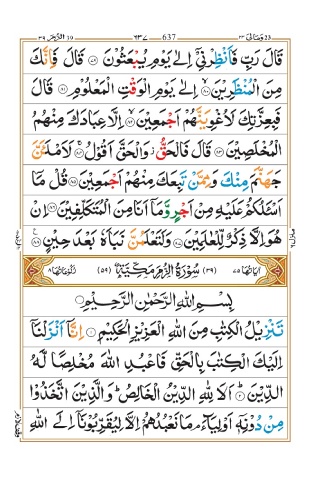 الزمر ٣٩ ٦٣٧ 637 ومالي ٢٣
قَالَ رَبِّ فَاَنْظِرْنِيْۤ اِلٰى يَوْمِ يُبْعَثُوْنَ ﴿٧٩﴾ قَالَ فَاِنَّكَ
مِنَ الْمُنْظَرِيْنَ ﴿٨٠﴾ اِلٰى يَوْمِ الْوَقْتِ الْمَعْلُوْمِ ﴿٨١﴾ قَالَ
فَبِعِزَّتِكَ لَاُغْوِيَنَّهُمْ اَجْمَعِيْنَ ﴿٨٢﴾ اِلَّا عِبَادَكَ مِنْهُمُ
الْمُخْلَصِيْنَ ﴿٨٣﴾ قَالَ فَالْحَقُّ وَالْحَقَّ اَقُوْلُ ﴿٨٤﴾ لَاَمْلَـَٔنَّ
جَهَنَّمَ مِنْكَ وَمِمَّنْ تَبِعَكَ مِنْهُمْ اَجْمَعِيْنَ ﴿٨٥﴾ قُلْ مَاۤ
اَسْـَٔلُكُمْ عَلَيْهِ مِنْ اَجْرٍ وَّمَاۤ اَنَا مِنَ الْمُتَكَلِّفِيْنَ ﴿٨٦﴾ اِنْ
هُوَ اِلَّا ذِكْرٌ لِّلْعٰلَمِيْنَ ﴿٨٧﴾ وَلَتَعْلَمُنَّ نَبَاَهٗ بَعْدَ حِيْنٍ ﴿٨٨﴾
اٰيَاتُهَا ٧٥ (٣٩) سُوْرَةُ الزُّمَرِ مَكِّيَّةٌ (٥٩) رُكُوْعَاتُهَا ٨
بِسْمِ اللهِ الرَّحْمٰنِ الرَّحِيْمِ
تَنْزِيْلُ الْكِتٰبِ مِنَ اللهِ الْعَزِيْزِ الْحَكِيْمِ ﴿١﴾ اِنَّاۤ اَنْزَلْنَاۤ
اِلَيْكَ الْكِتٰبَ بِالْحَقِّ فَاعْبُدِ اللهَ مُخْلِصًا لَّهُ
الدِّيْنَ ﴿٢﴾ اَلَا لِلّٰهِ الدِّيْنُ الْخَالِصُ ؕ وَالَّذِيْنَ اتَّخَذُوْا
مِنْ دُوْنِهٖۤ اَوْلِيَآءَ ۘ مَا نَعْبُدُهُمْ اِلَّا لِيُقَرِّبُوْنَاۤ اِلَى اللهِ